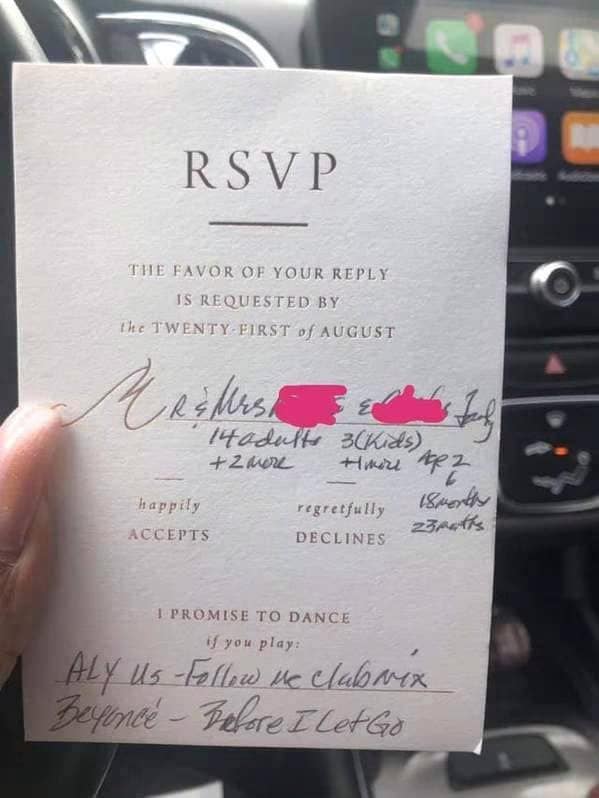 RSVP
THE FAVOR OF YOUR REPLY
IS REQUESTED BY
the TWENTY-FIRST of AUGUST
MR & Mrs &
14 adults 3(Kids)
+2 more +1 more Age 2
6
18 months
happily regretfully
23 months
ACCEPTS DECLINES
I PROMISE TO DANCE
if you play:
ALY US - Follow Me clubmix
Beyoncé - Before I Let Go